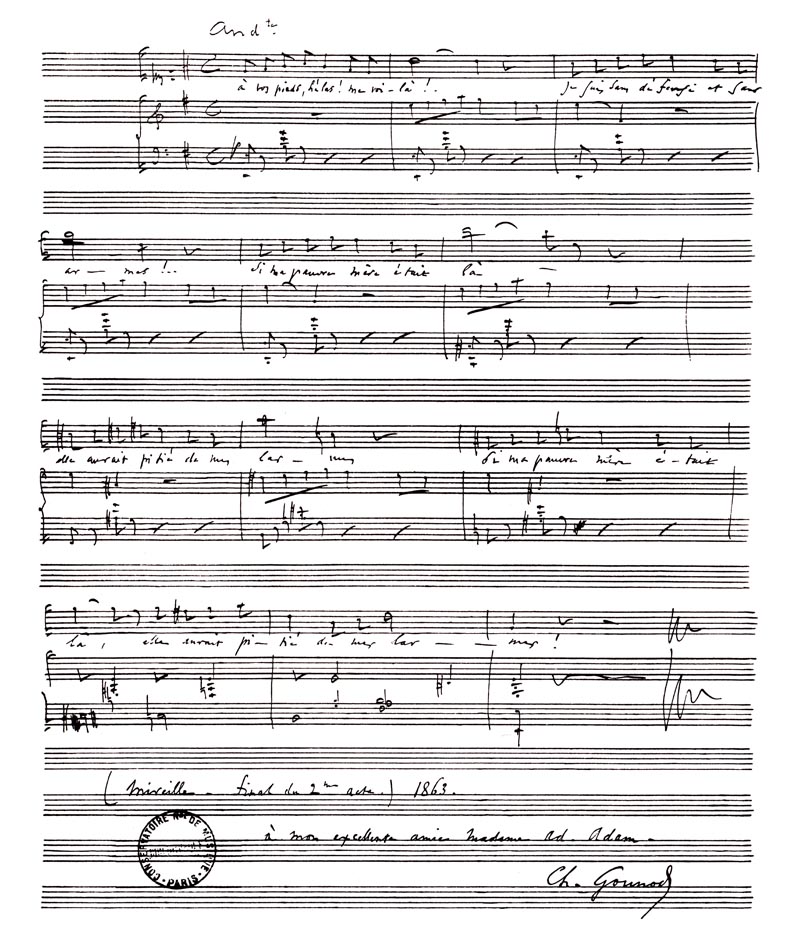 And<sup>te</sup>.
à vos pieds, hélas ! me voi-là !.. Je suis sans défense et sans
ar — mes !.. Si ma pauvre mère était là —
elle aurait pitié de mes lar — mes Si ma pauvre mère é-tait
là, elle aurait pi-tié de mes lar — — mes !
(Mireille — final du 2<sup>me</sup> acte.) 1863.
à mon excellente amie Madame Ad. Adam.
CONSERVATOIRE N<sup>AL</sup> DE MUSIQUE · PARIS ·
Ch. Gounod